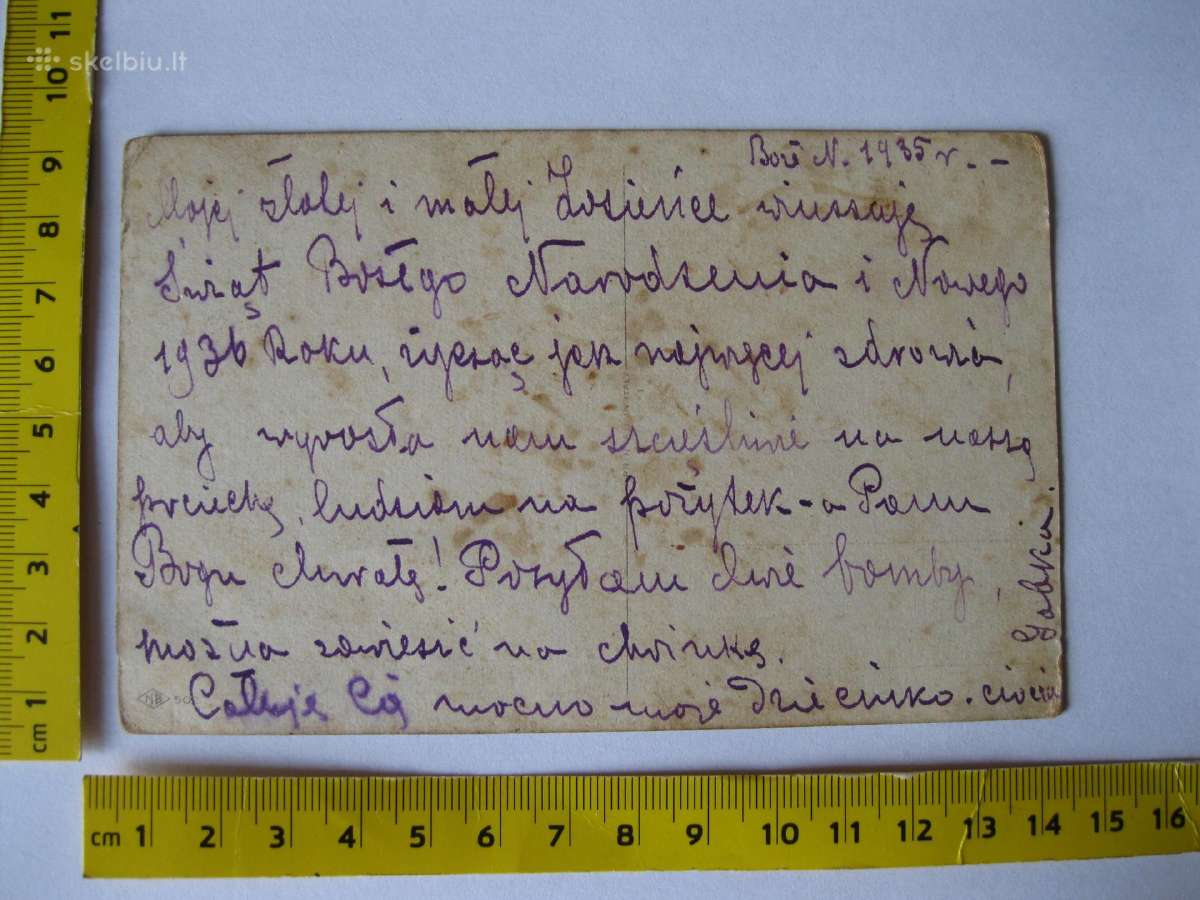 skelbiu.lt
Boże N. 1935 r. -
Mojej złotej i małej Zosieńce winszuję
Świąt Bożego Narodzenia i Nowego
1936 Roku, życząc jak najwięcej zdrowia,
aby wyrosła nam szczęśliwie na naszą
pociechę, ludziom na pożytek - a Panu
Bogu chwałę! Posyłam dwie bomby,
można zawiesić na choinkę.
Całuję Cię mocno moje dziecinko. ciocia
NB 50
11
10
9
8
7
6
5
4
3
2
1
cm
cm 1 2 3 4 5 6 7 8 9 10 11 12 13 14 15 16